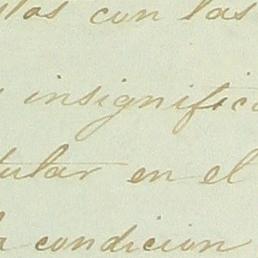 con las
insignific
tular en el
condicion